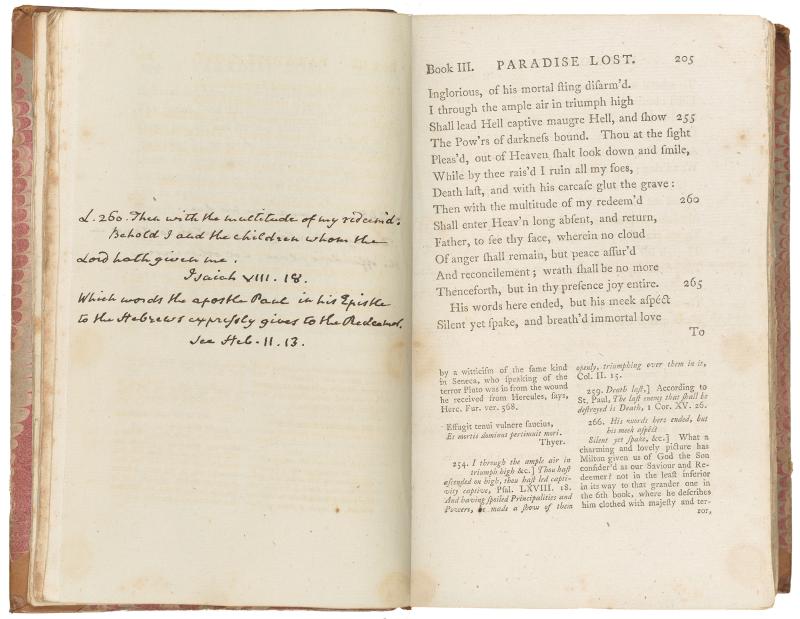 L. 260. Then with the multitude of my redeem'd.
Behold I and the children whom the
Lord hath given me.
Isaiah VIII. 18.
Which words the apostle Paul in his Epistle
to the Hebrews expreſsly gives to the Redeemer.
See Heb. 11. 13.
Book III. PARADISE LOST. 205
Inglorious, of his mortal ſting diſarm'd.
I through the ample air in triumph high
Shall lead Hell captive maugre Hell, and ſhow 255
The Pow'rs of darkneſs bound. Thou at the ſight
Pleas'd, out of Heaven ſhalt look down and ſmile,
While by thee rais'd I ruin all my foes,
Death laſt, and with his carcaſe glut the grave:
Then with the multitude of my redeem'd 260
Shall enter Heav'n long abſent, and return,
Father, to ſee thy face, wherein no cloud
Of anger ſhall remain, but peace aſſur'd
And reconcilement; wrath ſhall be no more
Thenceforth, but in thy preſence joy entire. 265
His words here ended, but his meek aſpéct
Silent yet ſpake, and breath'd immortal love
To
by a witticiſm of the ſame kind
in Seneca, who ſpeaking of the
terror Pluto was in from the wound
he received from Hercules, ſays,
Herc. Fur. ver. 568.
Effugit tenui vulnere ſaucius,
Et mortis dominus pertimuit mori.
Thyer.
254. I through the ample air in
triumph high &c.] Thou haſt
aſcended on high, thou haſt led capti-
vity captive, Pſal. LXVIII. 18.
And having ſpoiled Principalities and
Powers, he made a ſhow of them
openly, triumphing over them in it,
Col. II. 15.
259. Death laſt,] According to
St. Paul, The laſt enemy that ſhall be
deſtroyed is Death, 1 Cor. XV. 26.
266. His words here ended, but
his meek aſpéct
Silent yet ſpake, &c.] What a
charming and lovely picture has
Milton given us of God the Son
conſider'd as our Saviour and Re-
deemer! not in the leaſt inferior
in its way to that grander one in
the 6th book, where he deſcribes
him clothed with majeſty and ter-
ror,